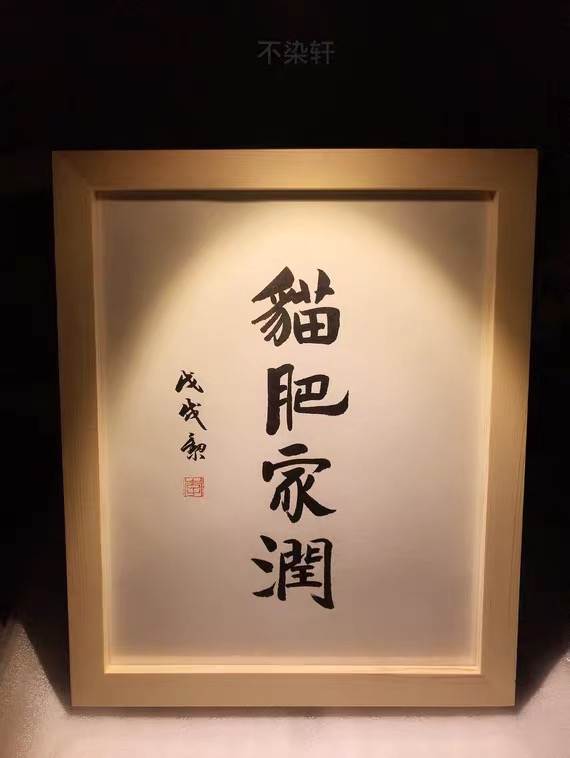 不染轩
貓肥家潤
戊戌